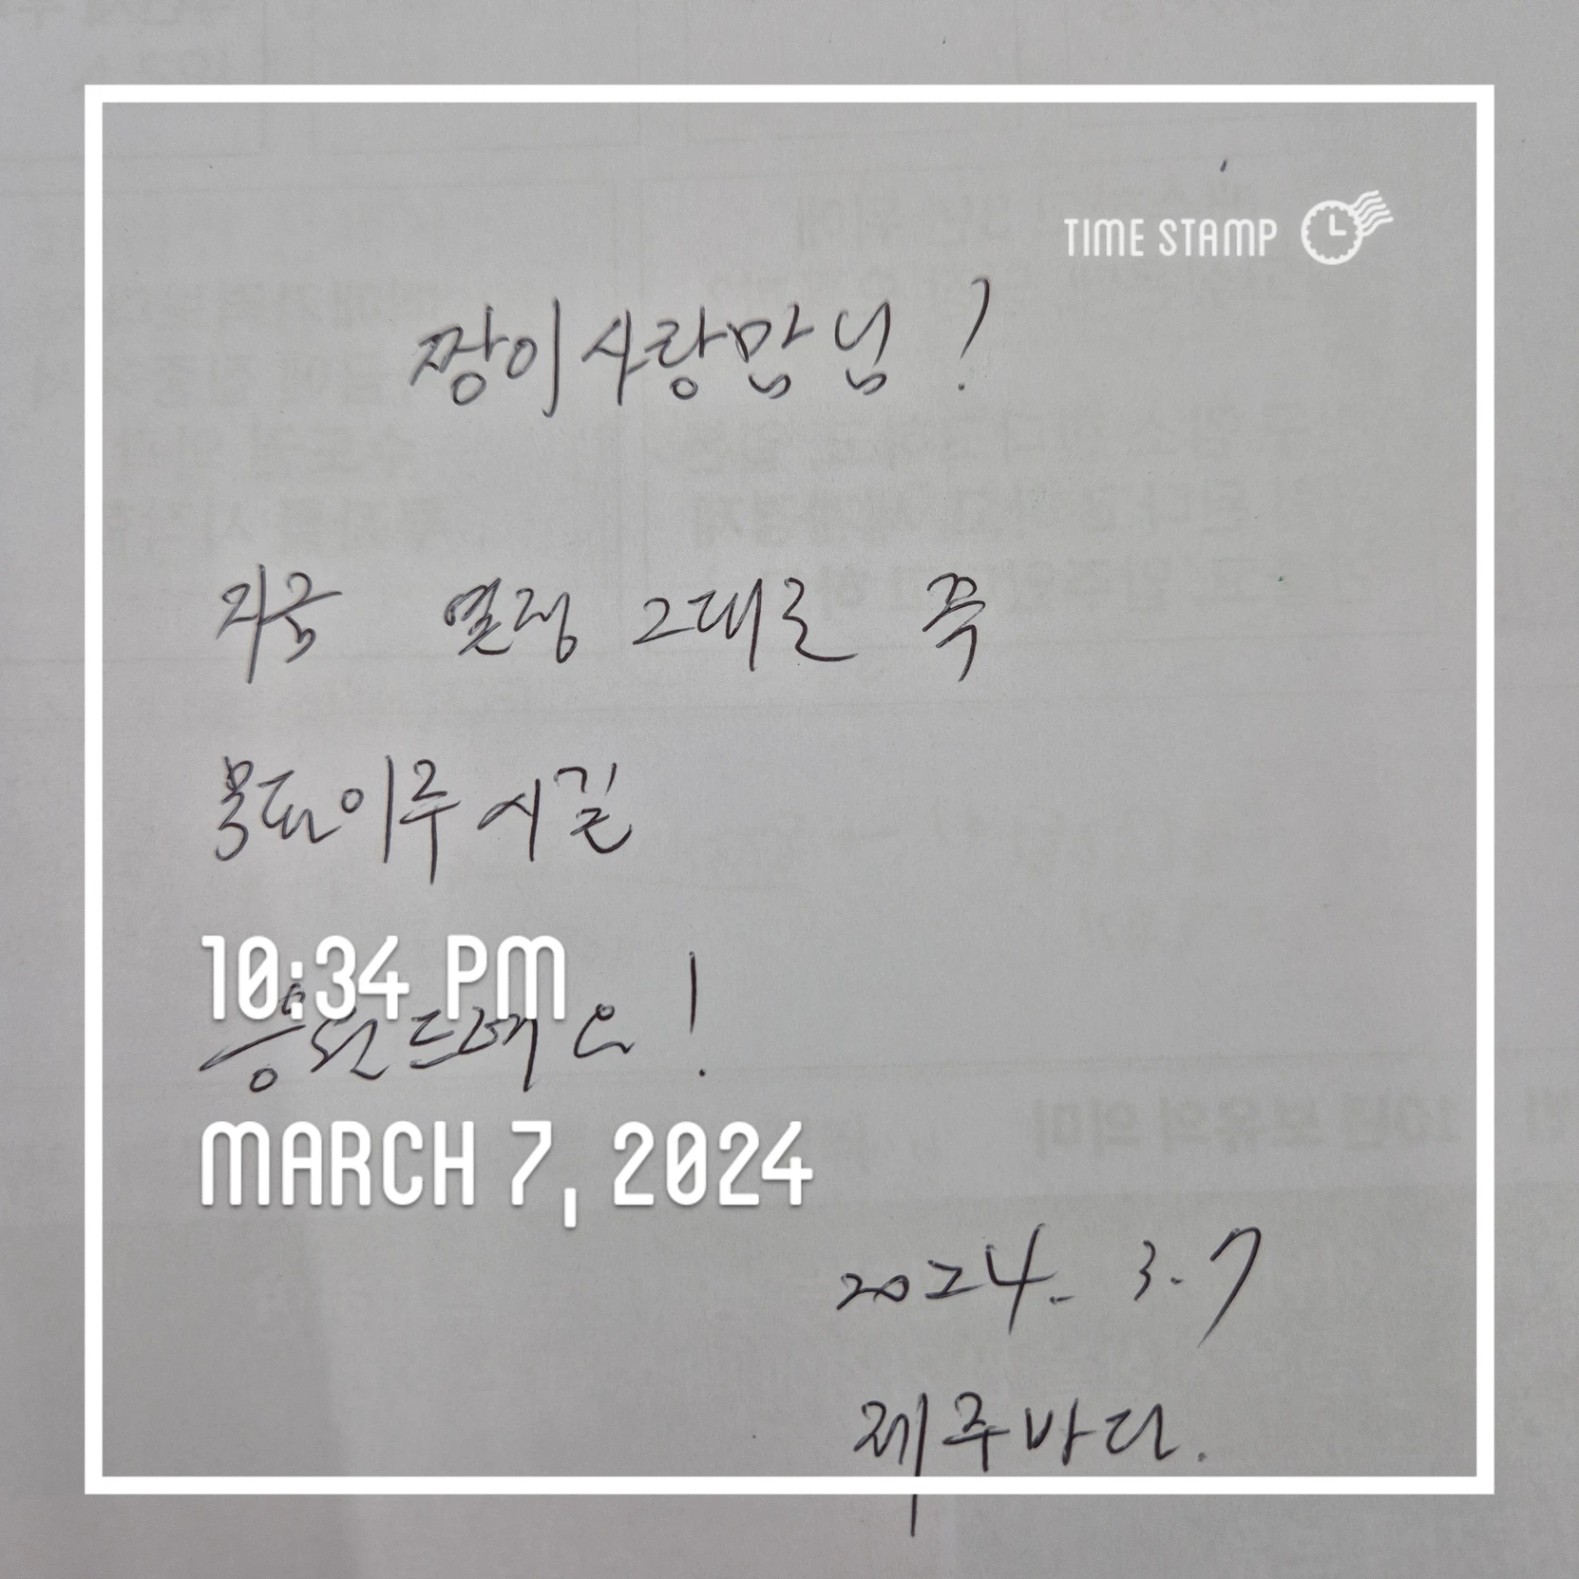 TIME STAMP
짱이사랑맘님?
지금 열정 그대로 쭉
목표이루시길
10:34 PM
응원드려요!
MARCH 7, 2024
2024. 3.7
제주바다.